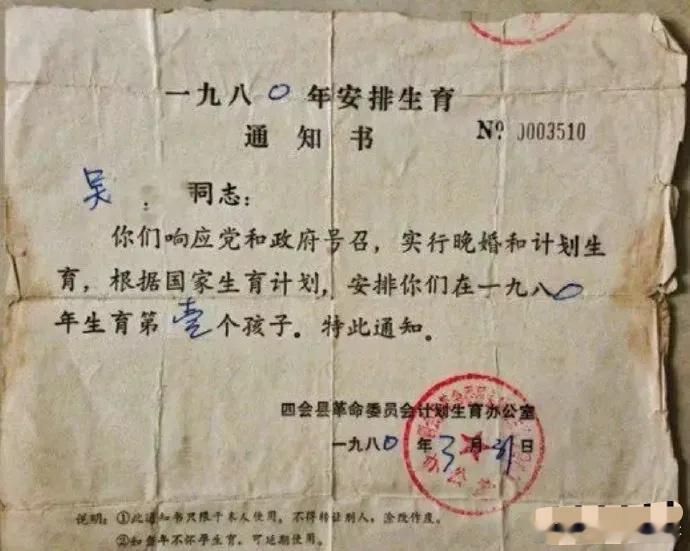 一九八0年安排生育
通知书
№ 0003510
吴 : 同志:
你们响应党和政府号召，实行晚婚和计划生
育，根据国家生育计划，安排你们在一九八0
年生育第壹个孩子。特此通知。
四会县革命委员会计划生育办公室
一九八0年3月31日
说明：①此通知书只限于本人使用，不得转让别人，涂改作废。
②如当年不怀孕生育，可延期使用。